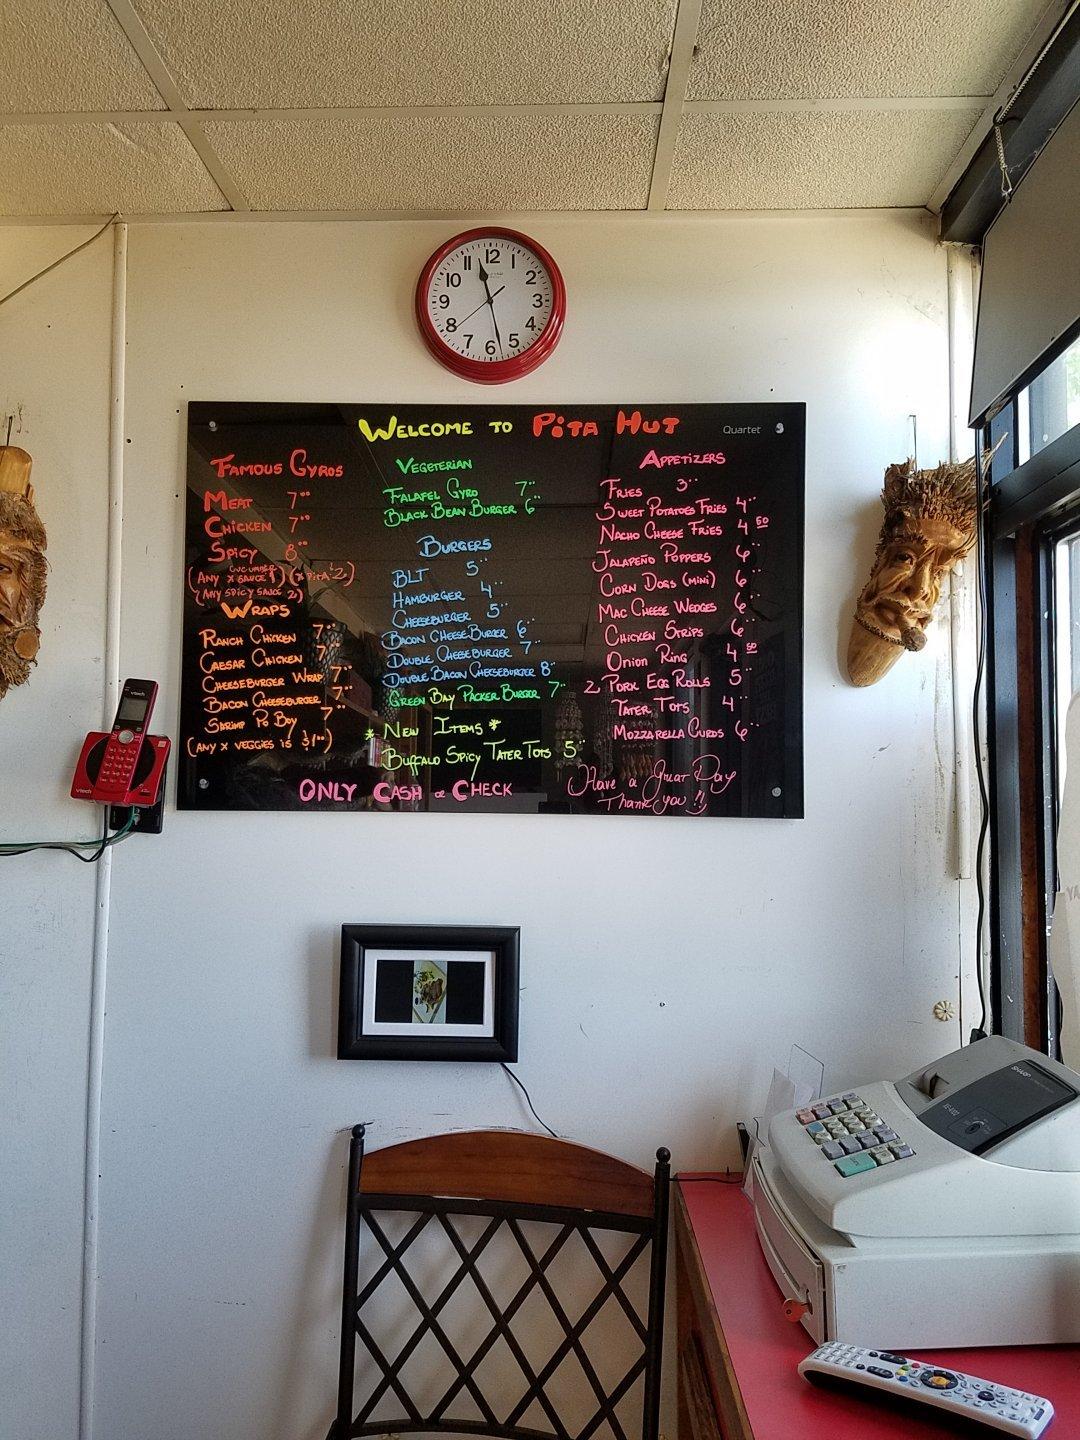 12
1
2
3
4
5
6
7
8
9
10
11
WELCOME TO PiTA HUT
Quartet
FAMOUS GYROS
MEAT 7°°
CHICKEN 7°°
SPICY 8°°
CUCUMBER
(ANY X SAUCE 1) (X PITA 2)
(ANY SPICY SAUCE 2)
WRAPS
RANCH CHICKEN 7°°
CAESAR CHICKEN 7°°
CHEESEBURGER WRAP 7°°
BACON CHEESEBURGER 7°°
SHRIMP PO BOY 7°°
(ANY X VEGGIES IS $1°°)
VEGETERIAN
FALAFEL GYRO 7°°
BLACK BEAN BURGER 6°°
BURGERS
BLT 5°°
HAMBURGER 4°°
CHEESEBURGER 5°°
BACON CHEESEBURGER 6°°
DOUBLE CHEESEBURGER 7°°
DOUBLE BACON CHEESEBURGER 8°°
GREEN BAY PACKER BURGER 7°°
* NEW ITEMS *
BUFFALO SPICY TATER TOTS 5°°
ONLY CASH or CHECK
APPETIZERS
FRIES 3°°
SWEET POTATOES FRIES 4°°
NACHO CHEESE FRIES 4 50
JALAPEÑO POPPERS 6°°
CORN DOGS (MINI) 6°°
MAC CHEESE WEDGES 6°°
CHICKEN STRIPS 6°°
ONION RING 4 50
2 PORK EGG ROLLS 5°°
TATER TOTS 4°°
MOZZARELLA CURDS 6°°
Have a Great Day
Thank you !!
vtech
vtech
SHARP